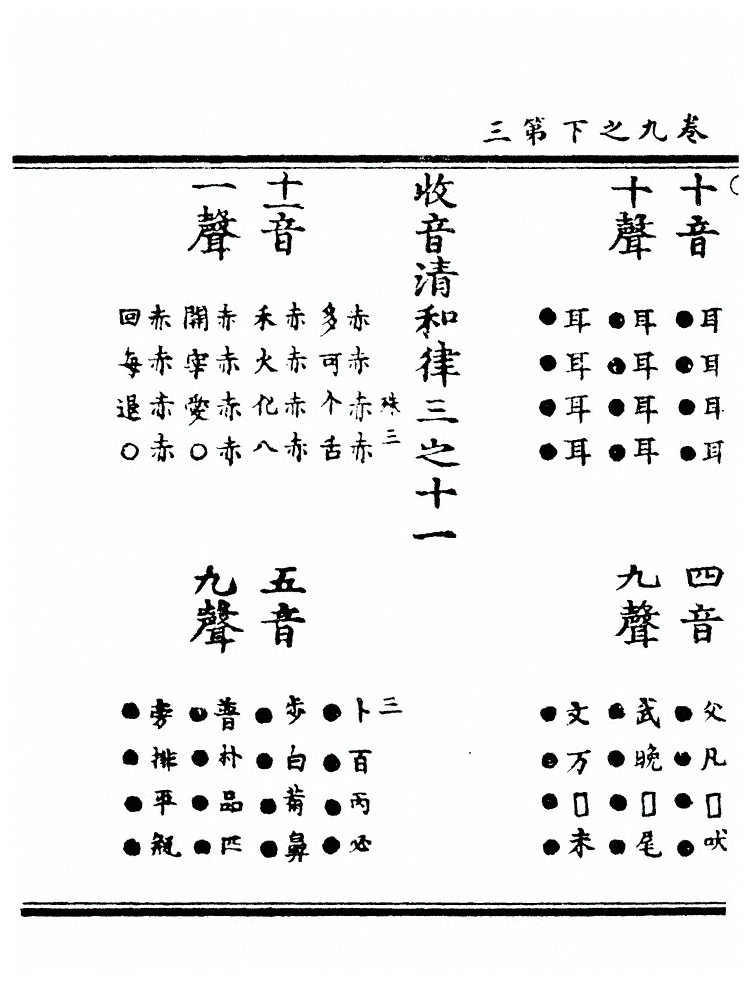 卷九之下第三
十音
十聲
耳耳耳耳
●●●●
耳耳耳耳
●●●●
耳耳耳耳
●●●●
四音
九聲
父凡□吠
●●●●
武晚□尾
●●●●
文万□未
●●●●
收音清和律三之十一
十一音
一聲
三
赤赤赤赤
多可个舌
赤赤赤赤
禾火化八
赤赤赤赤
開宰愛○
赤赤赤赤
回每退○
五音
九聲
三
卜百丙必
●●●●
步白葡鼻
●●●●
普朴品匹
●●●●
旁排平瓶
●●●●